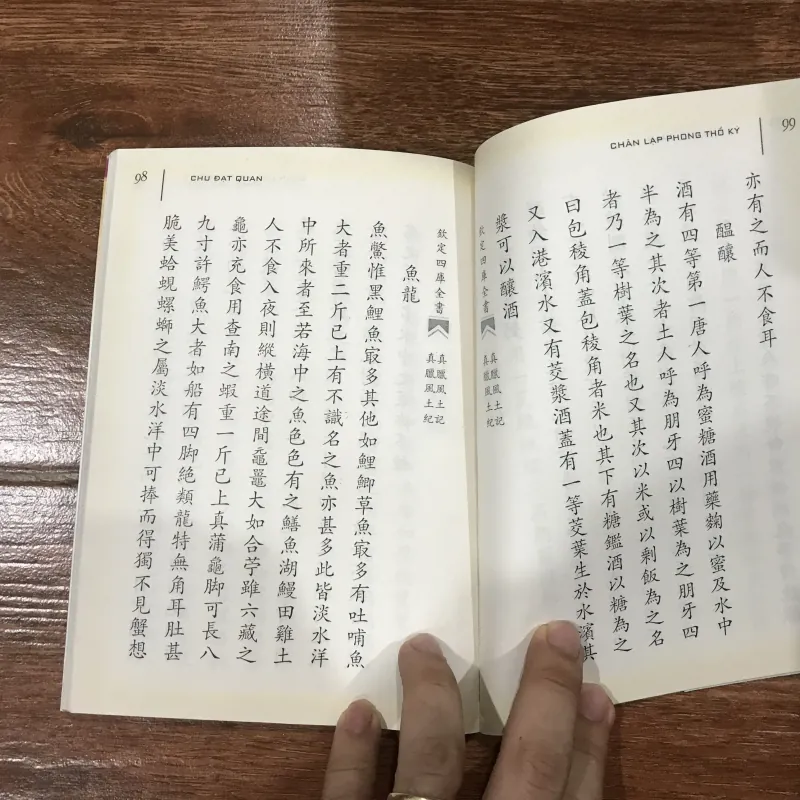 98
CHU ĐẠT QUAN
欽定四庫全書
真臘風土記
真臘風土紀
魚龍
魚鱉惟黑鯉魚㝡多其他如鯉鯽草魚㝡多有吐哺魚
大者重二斤已上有不識名之魚亦甚多此皆淡水洋
中所來者至若海中之魚色色有之鱔魚湖鰻田雞土
人不食入夜則縱橫道途間黿鼉大如合苧雖六藏之
龜亦充食用查南之蝦重一斤已上真蒲龜脚可長八
九寸許鰐魚大者如船有四脚絶類龍特無角耳肚甚
脆美蛤蜆螺螄之屬淡水洋中可捧而得獨不見蟹想
CHÂN LẠP PHONG THỔ KÝ
99
亦有之而人不食耳
醖釀
酒有四等第一唐人呼為蜜糖酒用藥麴以蜜及水中
半為之其次者土人呼為朋牙四以樹葉為之朋牙四
者乃一等樹葉之名也又其次以米或以剩飯為之名
曰包稜角蓋包稜角者米也其下有糖鑑酒以糖為之
又入港濱水又有茭漿酒蓋有一等茭葉生於水濱其
漿可以釀酒
欽定四庫全書
真臘風土記
真臘風土紀